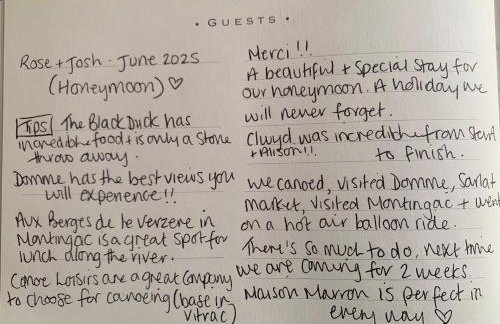 • GUESTS •
Rose + Josh · June 2025
(Honeymoon) ♡
Tips The Black Duck has
incredible food + is only a stone
throw away.
Domme has the best views you
will experience!!
Aux Berges de le Verzere in
Montingac is a great spot for
lunch along the river.
Canoe Loisirs are a great company
to choose for canoeing (base in
Vitrac)
Merci!!
A beautiful + special stay for
our honeymoon. A holiday we
will never forget.
Clwyd was incredible from start
+ Alison!! to finish.
We canoed, visited Domme, Sarlat
market, visited Montingac + went
on a hot air balloon ride.
There's so much to do, next time
we are coming for 2 weeks.
Maison Marron is perfect in
every way ♡